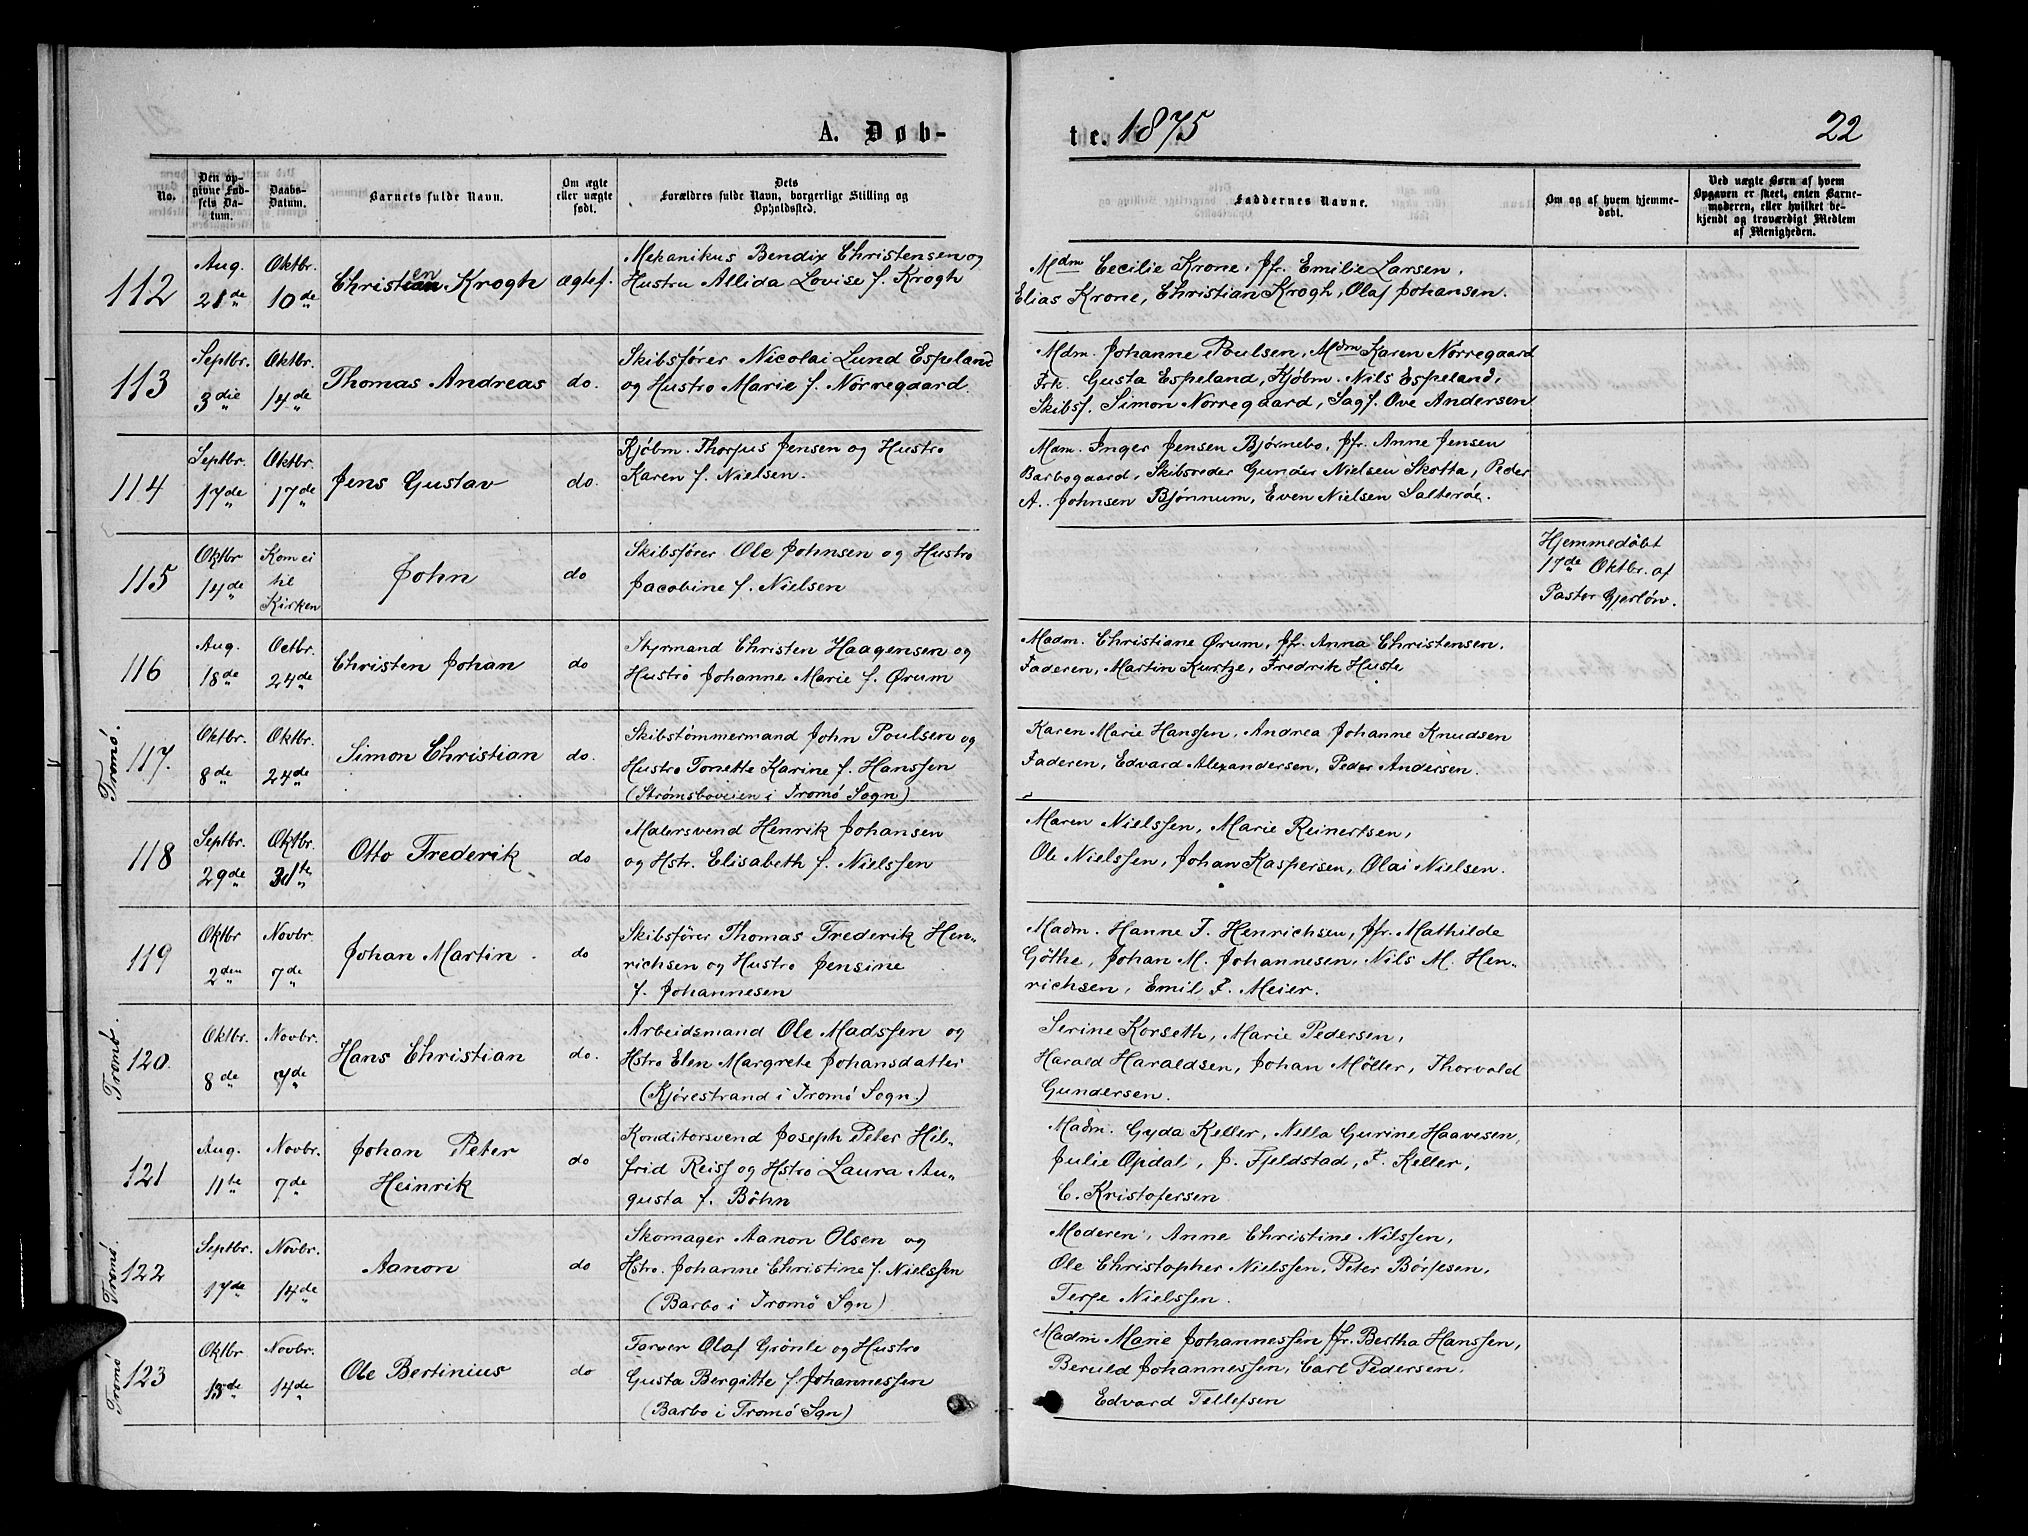 A. Døb-
te. 1875
22
No.
Den opgivne Fødsels Datum.
Daabs-Datum.
Barnets fulde Navn.
Om ægte eller uægte født.
Dets Forældres fulde Navn, borgerlige Stilling og Opholdssted.
Faddernes Navne.
Om og af hvem hjemmedøbt.
Ved uægte Børn af hvem Opgaven er skeet, enten Barnemoderen, eller hvilket bekjendt og troværdigt Medlem af Menigheden.
112
Aug. 21de
Oktbr. 10de
Christen Krogh
ægtef.
Mekanikus Bendix Christensen og
Hustru Allida Lovise f. Krogh
Mdm Cecilie Krone, Jfr. Emilie Larsen,
Elias Krone, Christian Krogh, Olaf Johansen.
113
Septbr. 3die
Oktbr. 14de
Thomas Andreas
do.
Skibsfører Nicolai Lund Espeland
og Hustro Marie f. Nørregaard
Mdm. Johanne Poulsen, Mdm Karen Nørregaard
Frk. Gusta Espeland, Kjøbm. Nils Espeland,
Skibsf. Simon Nørregaard, Sagf. Ove Andersen
114
Septbr. 17de
Oktbr. 17de
Jens Gustav
do.
Kjøbm. Thorjus Jensen og Hustro
Karen f. Nielsen.
Mdm. Inger Jensen Bjørnebo, Jfr. Anne Jensen
Barbogaard, Skibsreder Gunder Nielsen Skotta, Peder
A. Johnsen Bjønnum, Even Nielsen Salterøe.
115
Oktbr 14de
Kom ei til Kirken
John
do
Skibsfører Ole Johnsen og Hustro
Jacobine f. Nielsen
Hjemmedøbt
17de Oktbr. af
Pastor Gjerløw.
116
Aug. 18de
Octbr. 24de
Christen Johan
do
Styrmand Christen Haagensen og
Hustro Johanne Marie f. Ørum
Madm. Christiane Ørum, Jfr. Anna Christensen,
Faderen, Martin Kurtze, Fredrik Huste
Tromø.
117.
Oktbr. 8de
Oktbr. 24de
Simon Christian
do.
Skibstømmermand John Poulsen og
Hustro Tonette Karine f. Hanssen
(Strømsboveien i Tromø Sogn)
Karen Marie Hanssen, Andrea Johanne Knudsen
Faderen, Edvard Alexandersen, Peder Andersen.
118
Septbr. 29de
Oktbr. 31te
Otto Frederik
do
Malersvend Henrik Johansen
og Hstr. Elisabeth f. Nielssen
Maren Nielssen, Marie Reinertsen,
Ole Nielssen, Johan Kaspersen, Olai Nielsen.
119
Oktbr 2den
Novbr. 7de
Johan Martin.
do
Skibsfører Thomas Frederik Hen-
richsen og Hustro Jensine
f. Johannesen
Madm. Hanne F. Henrichsen, Jfr. Mathilde
Gøthe, Johan M. Johannesen, Nils M. Hen-
richsen, Emil F. Meier.
Tromø.
120.
Oktbr. 8de
Novbr. 7de
Hans Christian
do.
Arbeidsmand Ole Madssen og
Hstro Elen Margrete Johansdatter
(Kjørestrand i Tromø Sogn.)
Serine Korseth, Marie Pedersen,
Harald Haraldsen, Johan Møller, Thorvald
Gundersen.
121
Aug. 11te
Novbr. 7de
Johan Peter
Heinrik
do
Konditorsvend Joseph Peter Hil-
frid Reiss og Hstro Laura Au-
gusta f. Böhn
Madm. Gyda Keller, Nella Gurine Haavesen,
Julie Opdal, J. Fjeldstad, F. Keller,
C. Kristofersen
Tromø.
122
Septbr. 17de
Novbr. 14de
Aanon
do
Skomager Aanon Olsen og
Hstro. Johanne Christine f. Nielssen
(Barbo i Tromø Sgn)
Moderen, Anne Christine Nilssen,
Ole Christopher Nielssen, Peter Børjesen,
Terje Nielssen.
Tromø
123
Oktbr 13de
Novbr. 14de
Ole Bertinius
do
Farver Olaf Grønle og Hustro
Gusta Bergitte f. Johannessen
(Barbo i Tromø Sgn)
Madm Marie Johannessen Jfr. Bertha Hanssen,
Beruld Johannessen, Carl Pedersen,
Edvard Tellefsen